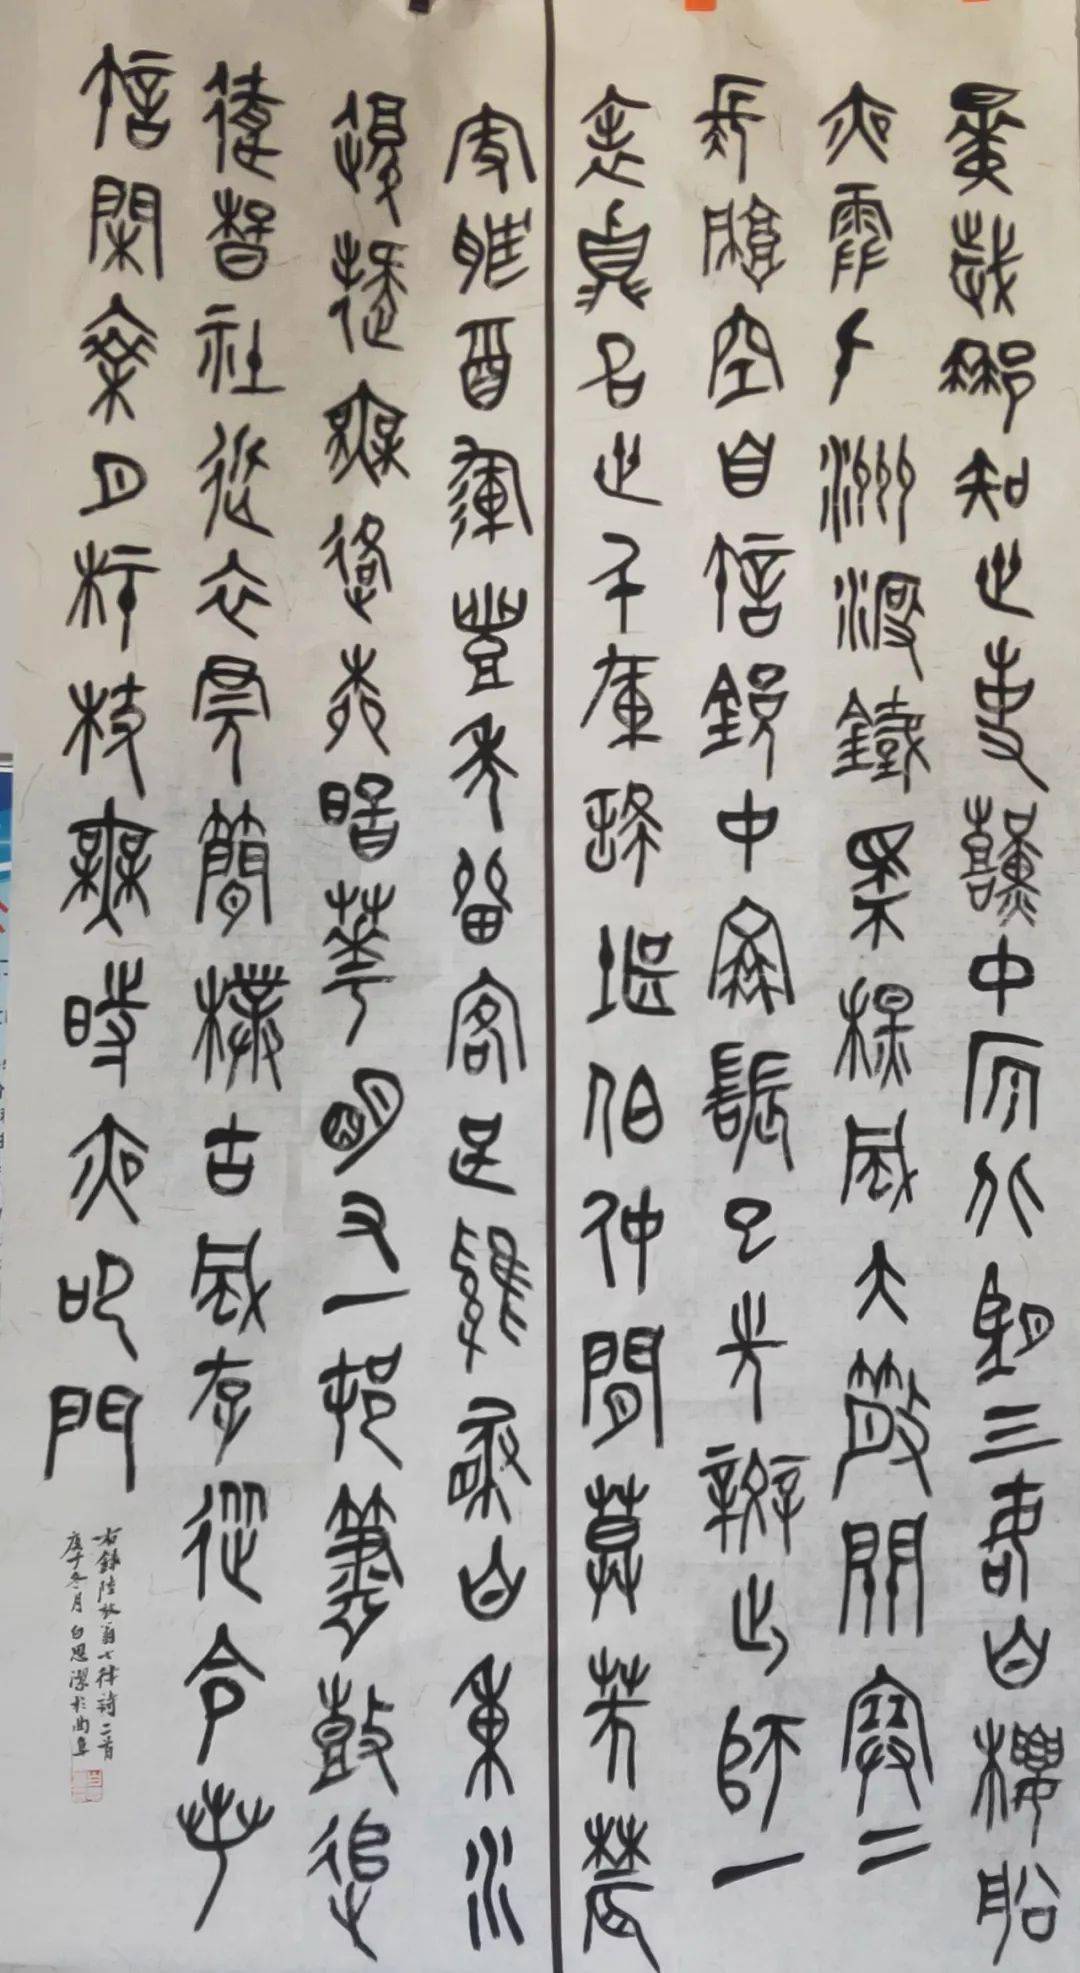 早歲那知世事艱中原北望氣如山樓船
夜雪瓜洲渡鐵馬秋風大散關塞上
長城空自許鏡中衰鬢已先斑出師一
表真名世千載誰堪伯仲間莫笑農
家臘酒渾豐年留客足雞豚山重水
復疑無路柳暗花明又一村簫鼓追
隨春社近衣冠簡樸古風存從今若
許閒乘月拄杖無時夜叩門
右錄陸放翁七律詩二首
庚子冬月白恩潔於曲阜